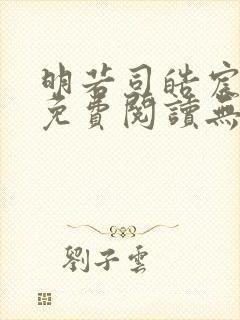 明若司皓宸
免費閱讀無
劉子雲